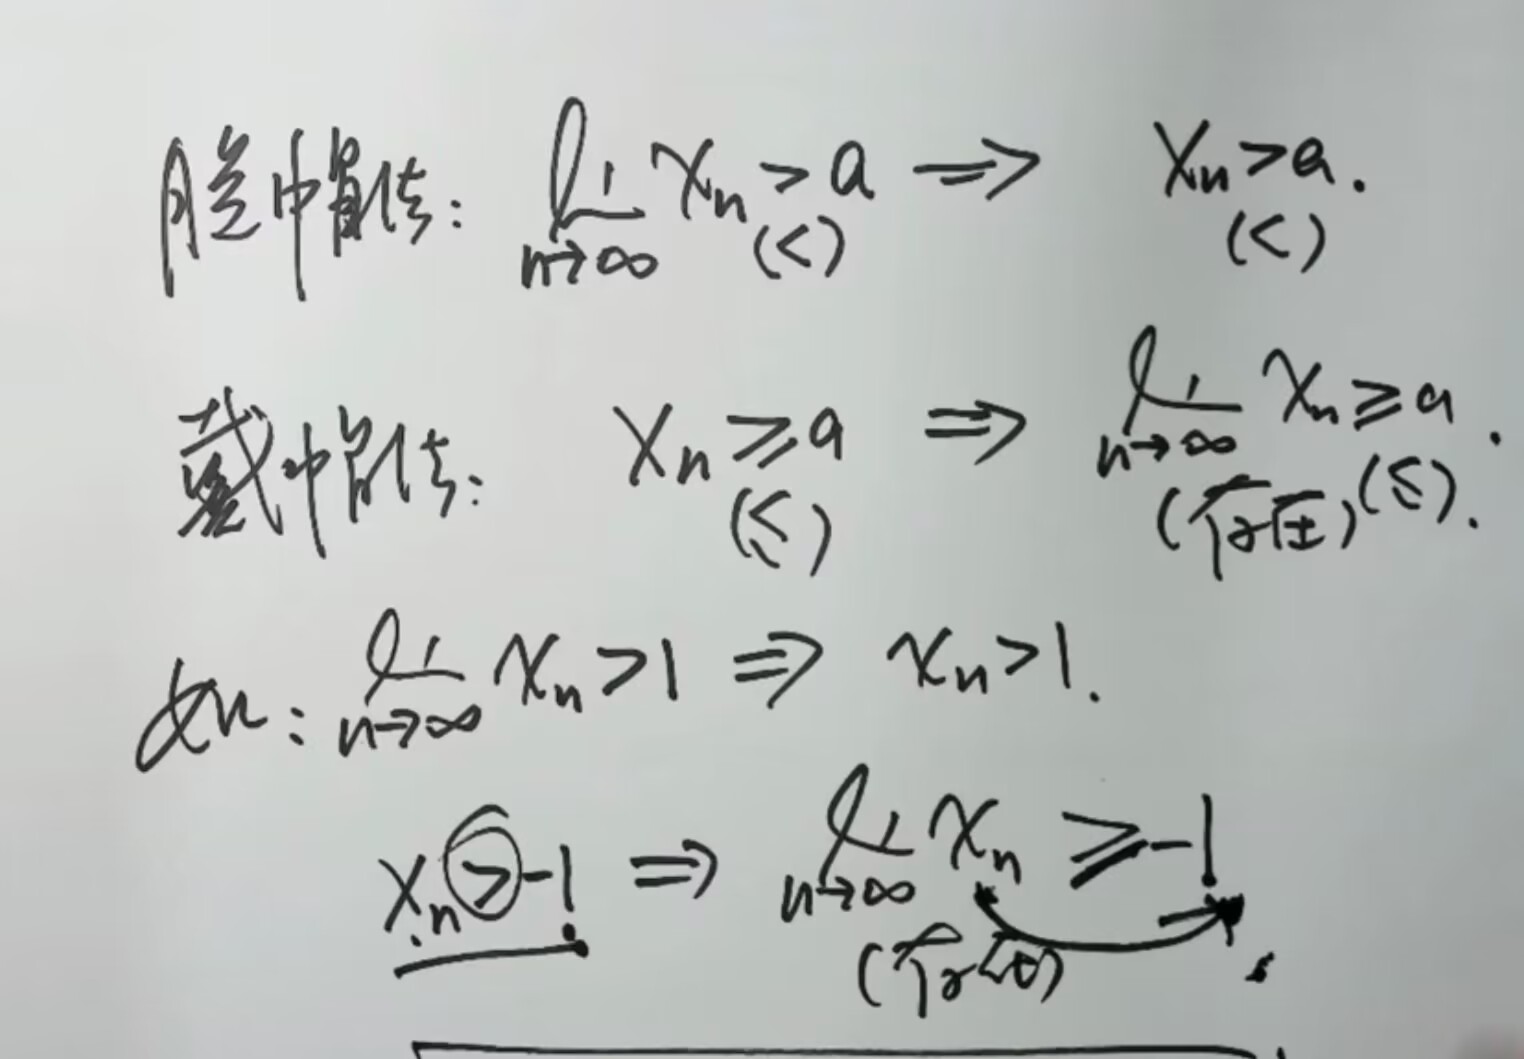 脱帽法: lim n→∞ xn > a ⇒ xn > a. (<) (<)
戴帽法: xn ≥ a ⇒ lim n→∞ xn ≥ a. (≤) (存在) (≤).
如: lim n→∞ xn > 1 ⇒ xn > 1.
xn > -1 ⇒ lim n→∞ xn ≥ -1. (存在)